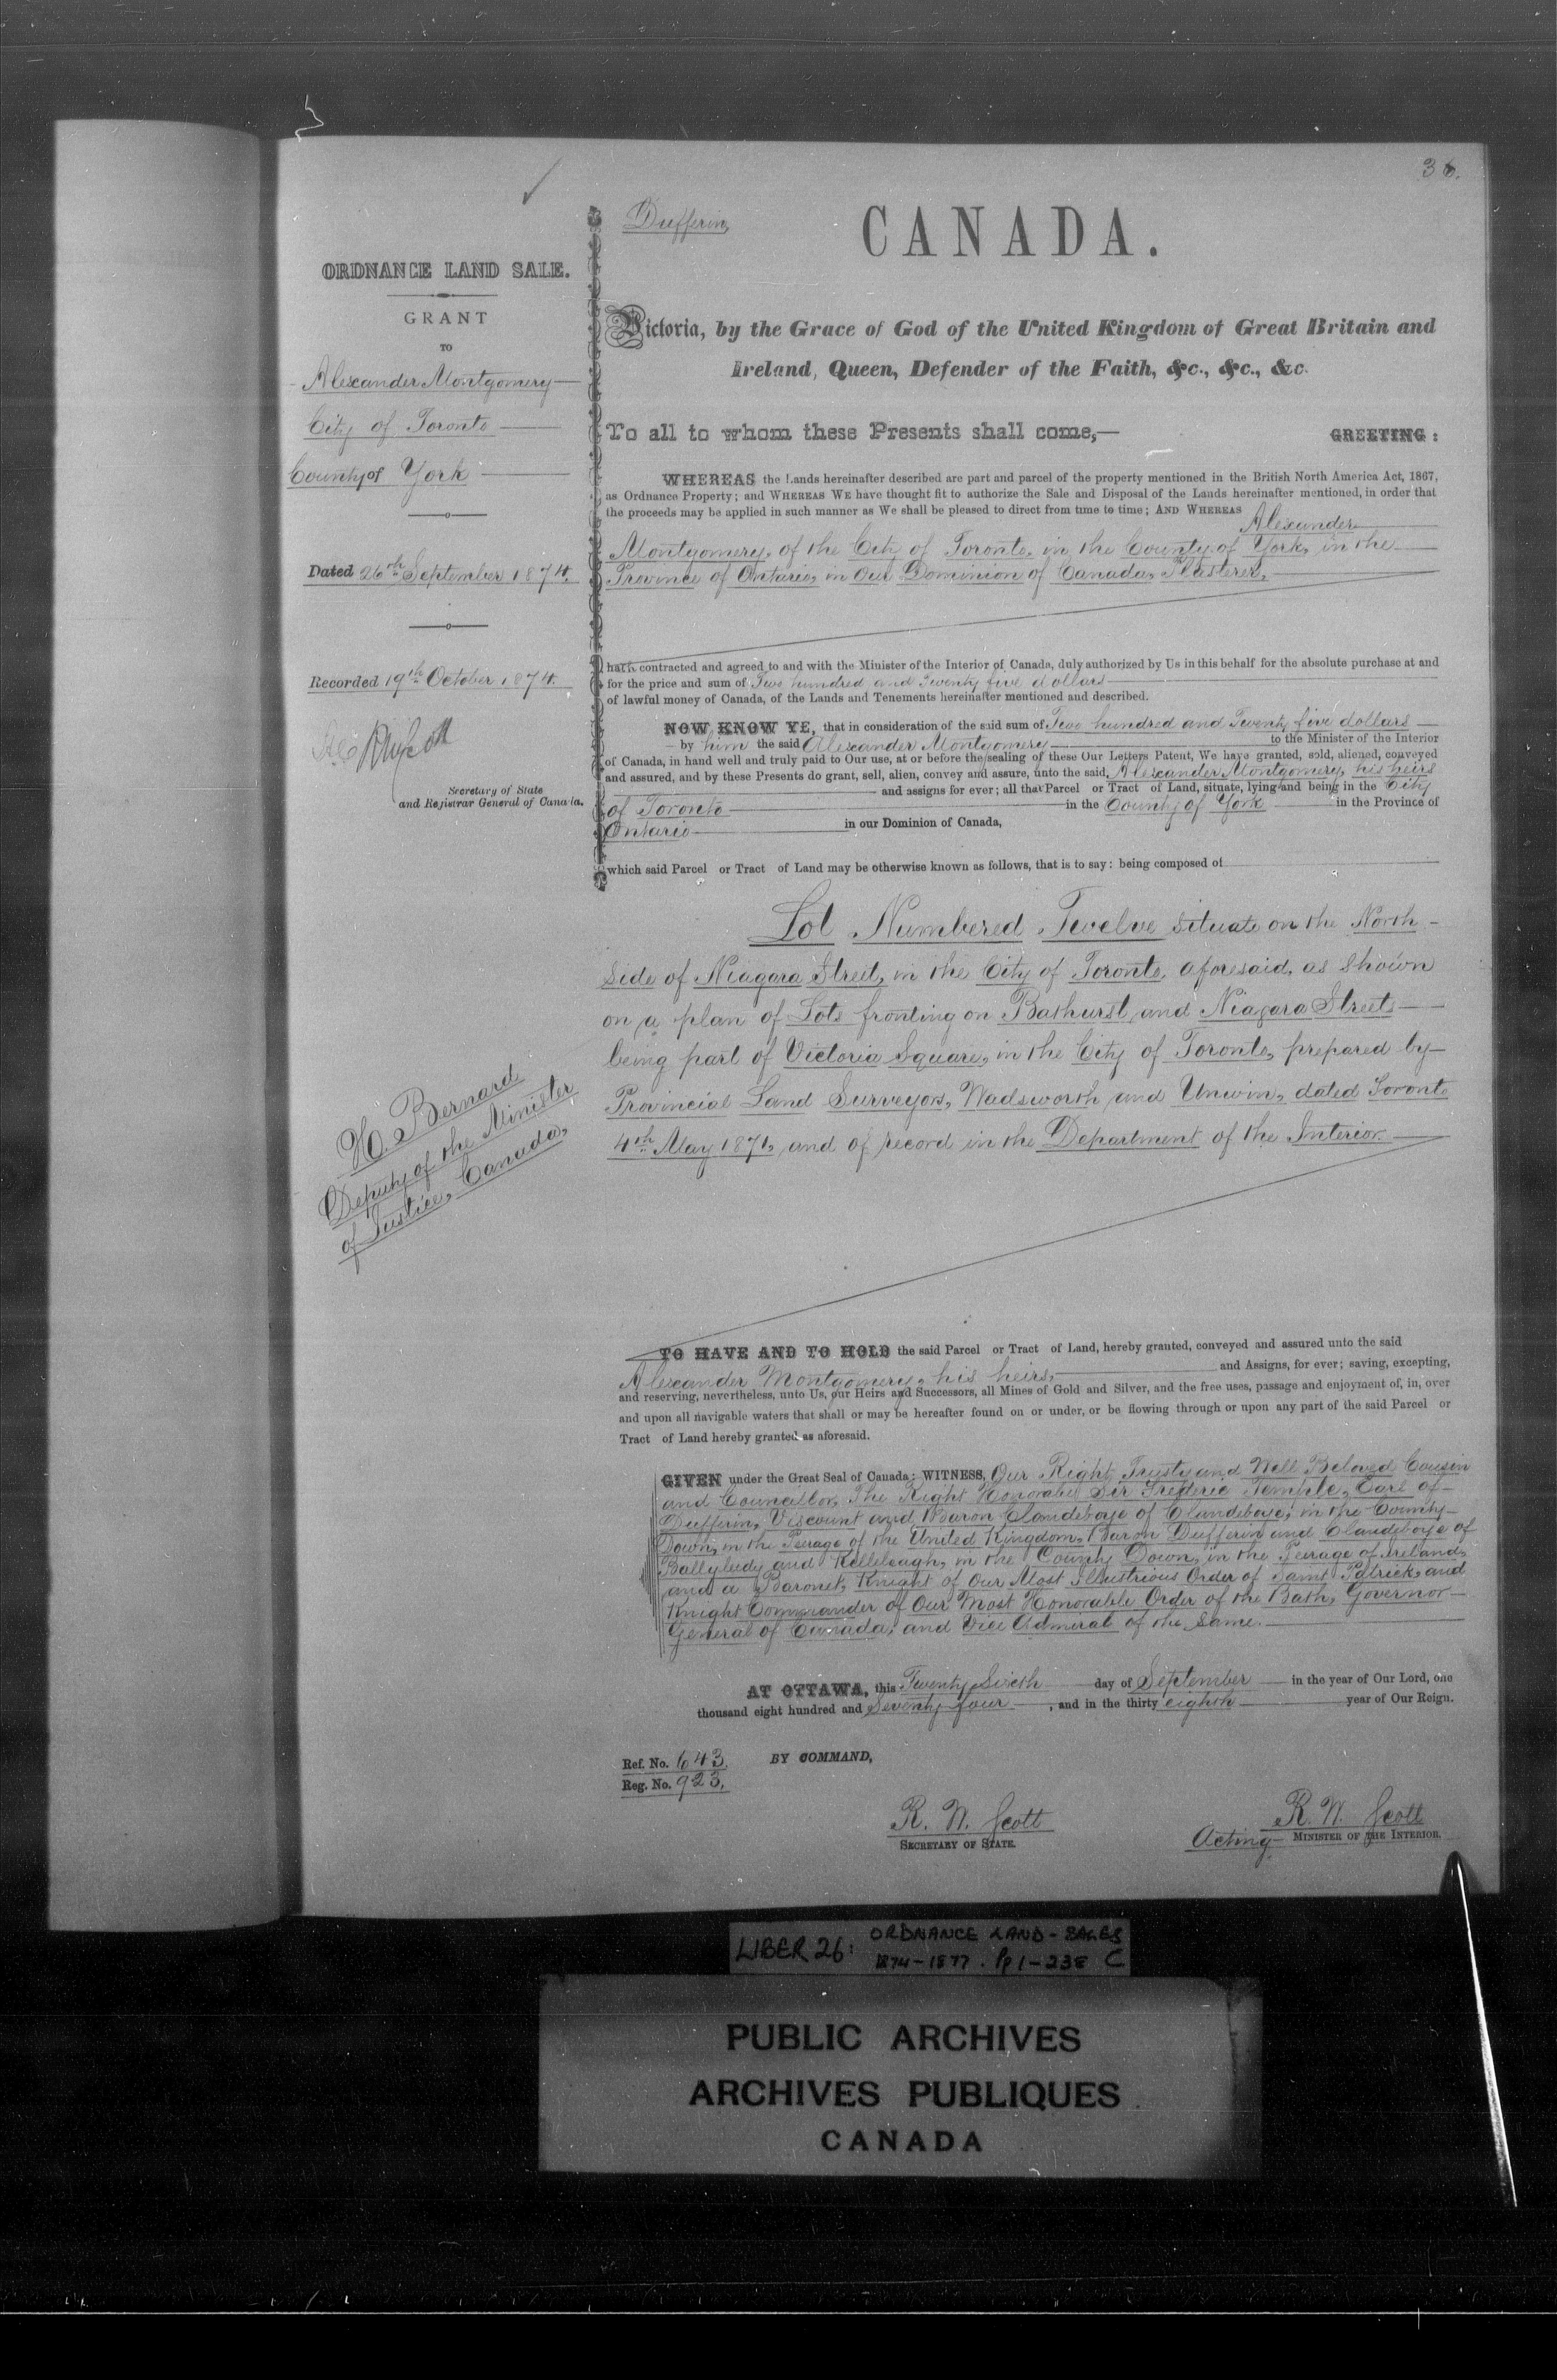 36.
ORDNANCE LAND SALE.
GRANT
TO
Alexander Montgomery
City of Toronto
County of York
Dated 26th September 1874.
Recorded 19th October 1874.
Secretary of State
and Registrar General of Canada.
H. Bernard
Deputy of the Minister
of Justice, Canada,
Dufferin,
CANADA.
Victoria, by the Grace of God of the United Kingdom of Great Britain and
Ireland, Queen, Defender of the Faith, &c., &c., &c.
To all to whom these Presents shall come,— GREETING:
WHEREAS the Lands hereinafter described are part and parcel of the property mentioned in the British North America Act, 1867,
as Ordnance Property; and WHEREAS WE have thought fit to authorize the Sale and Disposal of the Lands hereinafter mentioned, in order that
the proceeds may be applied in such manner as We shall be pleased to direct from time to time; AND WHEREAS Alexander
Montgomery, of the City of Toronto, in the County of York, in the
Province of Ontario, in Our Dominion of Canada, Plasterer,
hath contracted and agreed to and with the Minister of the Interior of Canada, duly authorized by Us in this behalf for the absolute purchase at and
for the price and sum of Two hundred and Twenty five dollars
of lawful money of Canada, of the Lands and Tenements hereinafter mentioned and described.
NOW KNOW YE, that in consideration of the said sum of Two hundred and Twenty five dollars
by him the said Alexander Montgomery to the Minister of the Interior
of Canada, in hand well and truly paid to Our use, at or before the sealing of these Our Letters Patent, We have granted, sold, aliened, conveyed
and assured, and by these Presents do grant, sell, alien, convey and assure, unto the said, Alexander Montgomery, his heirs
and assigns for ever; all that Parcel or Tract of Land, situate, lying and being in the City
of Toronto in the County of York in the Province of
Ontario in our Dominion of Canada,
which said Parcel or Tract of Land may be otherwise known as follows, that is to say: being composed of
Lot Numbered Twelve situate on the North
side of Niagara Street, in the City of Toronto, aforesaid, as shown
on a plan of Lots fronting on Bathurst and Niagara Streets
being part of Victoria Square, in the City of Toronto, prepared by
Provincial Land Surveyors, Wadsworth and Unwin, dated Toronto
4th May 1871, and of record in the Department of the Interior.
TO HAVE AND TO HOLD the said Parcel or Tract of Land, hereby granted, conveyed and assured unto the said
Alexander Montgomery, his heirs, and Assigns, for ever; saving, excepting,
and reserving, nevertheless, unto Us, our Heirs and Successors, all Mines of Gold and Silver, and the free uses, passage and enjoyment of, in, over
and upon all navigable waters that shall or may be hereafter found on or under, or be flowing through or upon any part of the said Parcel or
Tract of Land hereby granted as aforesaid.
GIVEN under the Great Seal of Canada: WITNESS, Our Right Trusty and Well Beloved Cousin
and Councillor, The Right Honorable Sir Frederic Temple, Earl of
Dufferin, Viscount and Baron Clandeboye of Clandeboye, in the County
Down, in the Peerage of the United Kingdom, Baron Dufferin and Clandeboye of
Ballyleidy and Killeleagh, in the County Down, in the Peerage of Ireland,
and a Baronet, Knight of Our Most Illustrious Order of Saint Patrick, and
Knight Commander of Our Most Honorable Order of the Bath, Governor
General of Canada, and Vice Admiral of the same.
AT OTTAWA, this Twenty Sixth day of September in the year of Our Lord, one
thousand eight hundred and Seventy four, and in the thirty eighth year of Our Reign.
Ref. No. 643. BY COMMAND,
Reg. No. 923.
R. W. Scott R. W. Scott
SECRETARY OF STATE. Acting MINISTER OF THE INTERIOR.
LIBER 26: ORDNANCE LAND-SALES
1874-1877. Pp 1-238 C
PUBLIC ARCHIVES
ARCHIVES PUBLIQUES
CANADA